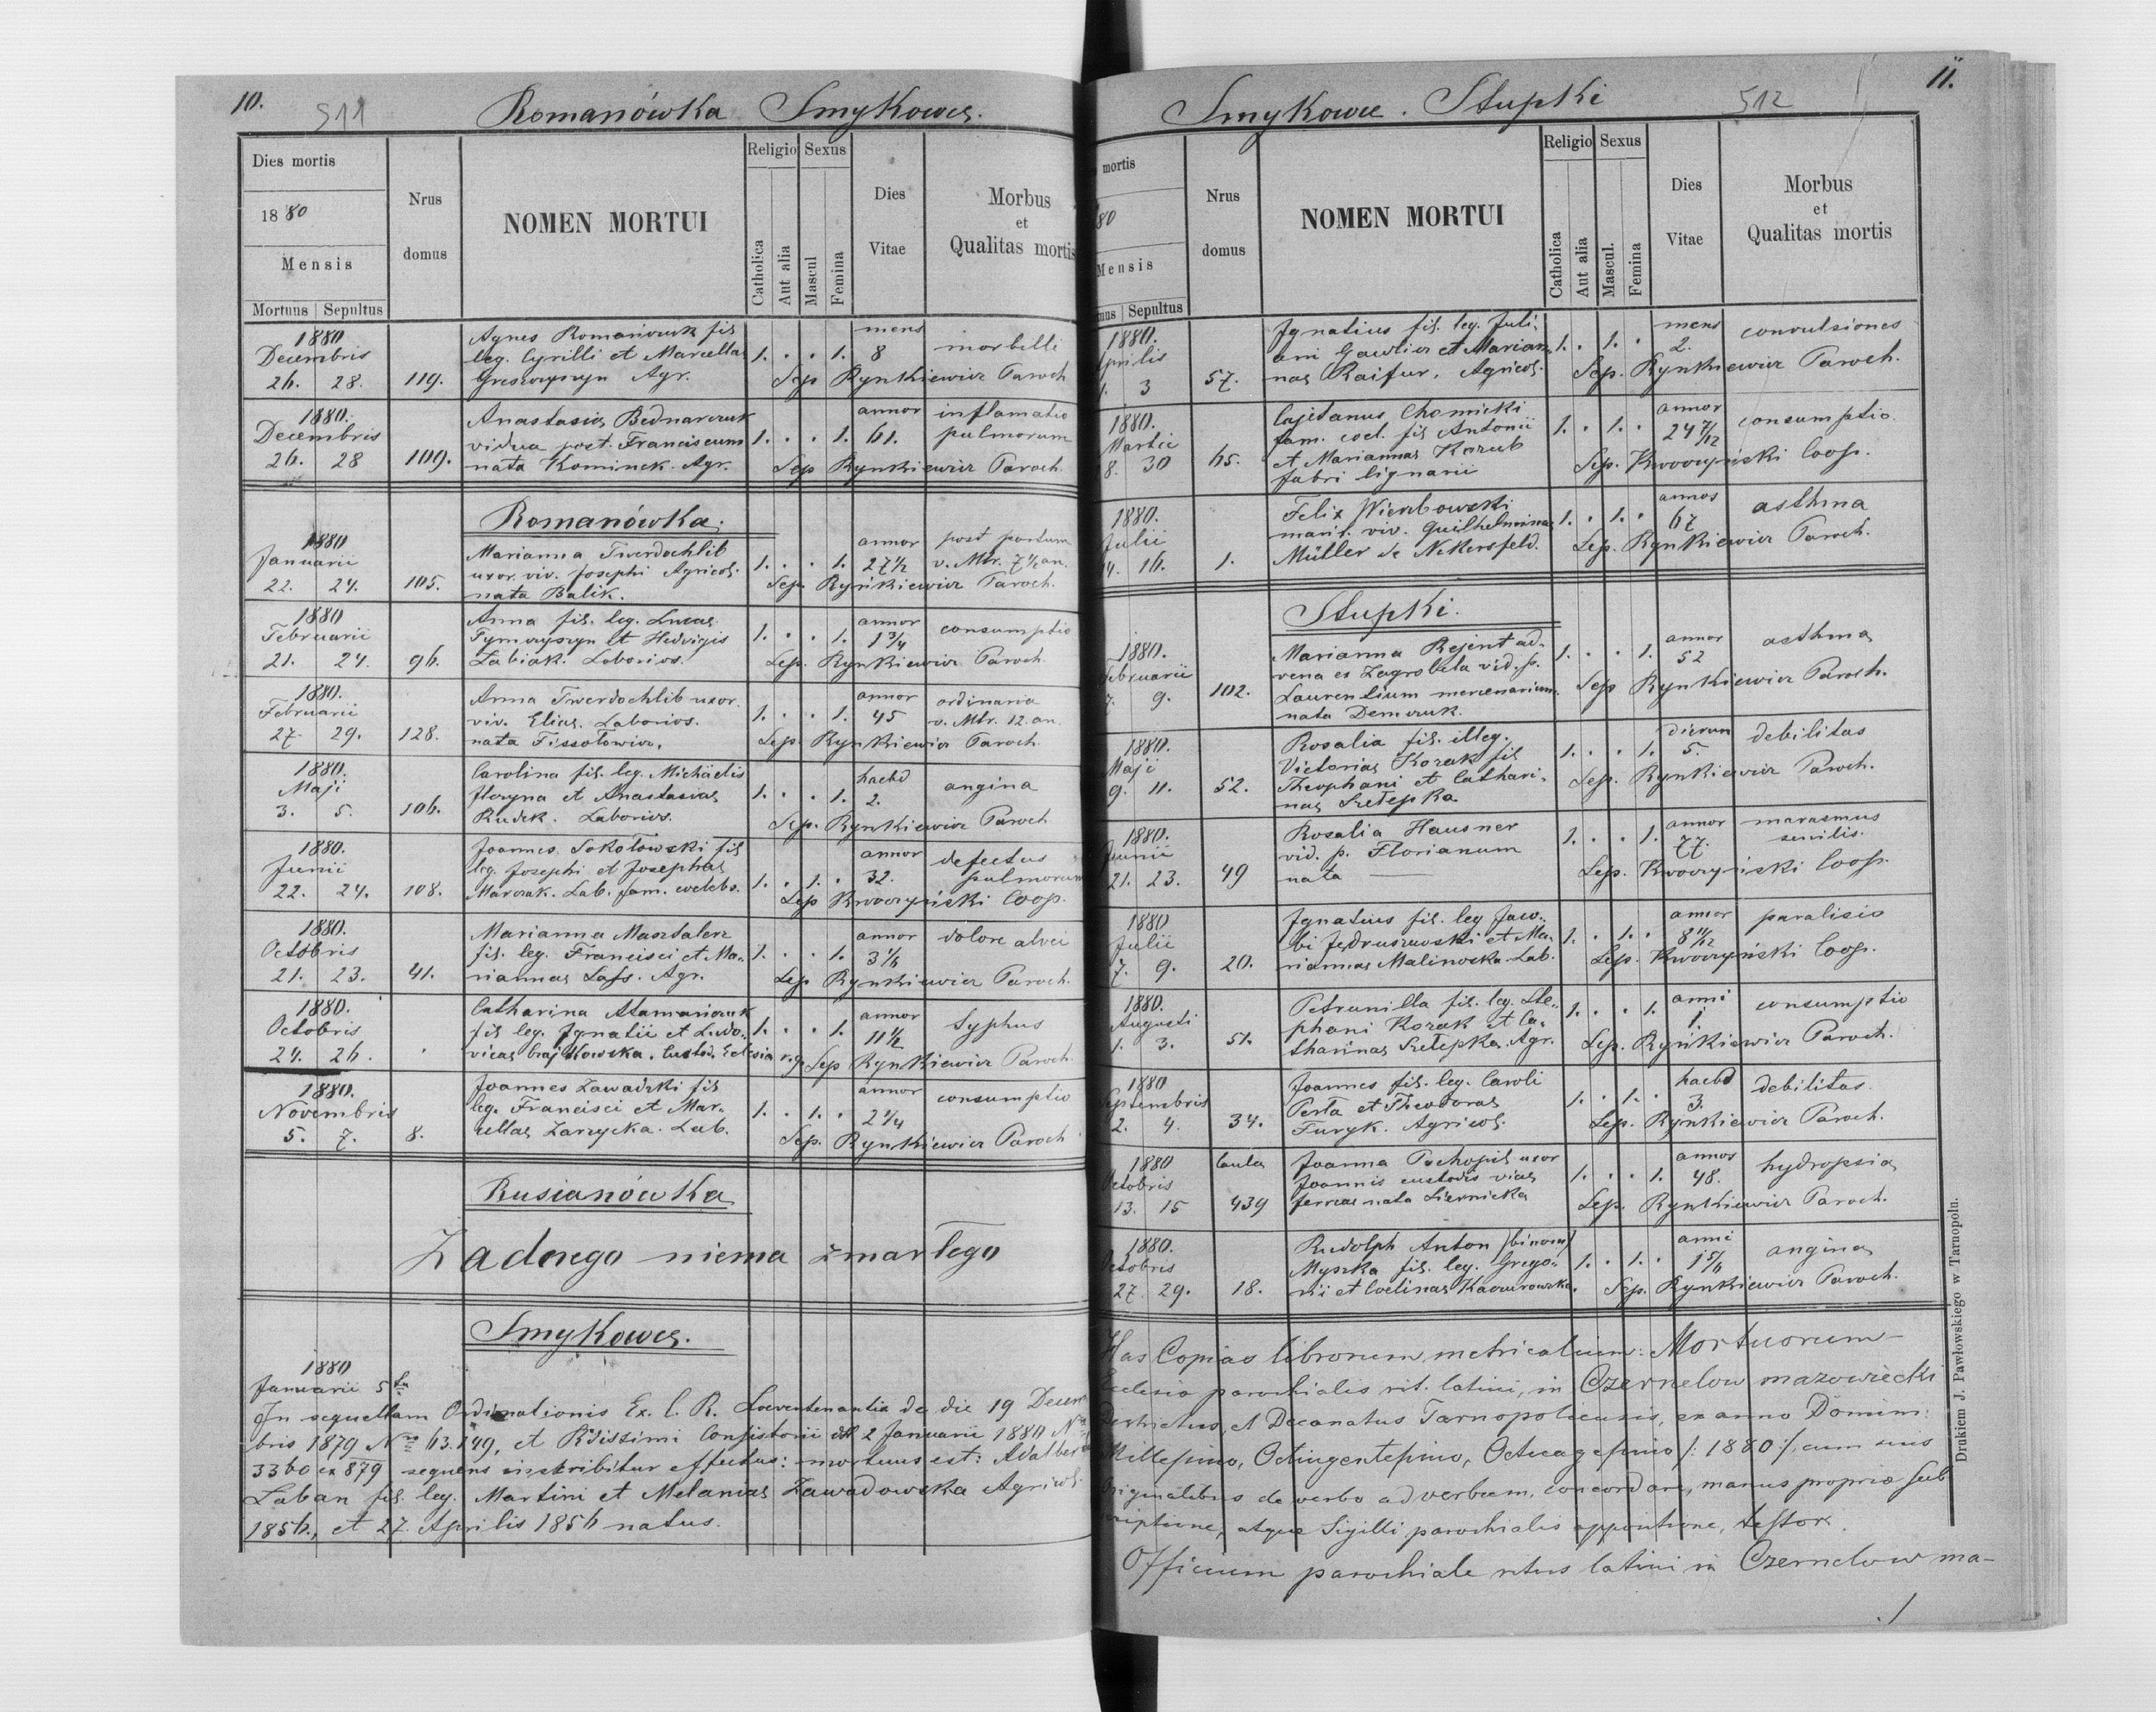 10.
511
Romanówka Smykowce.
Dies mortis
1880
Mensis
Mortuus Sepultus
Nrus domus
NOMEN MORTUI
Religio
Catholica
Aut alia
Sexus
Mascul
Femina
Dies Vitae
Morbus et Qualitas mortis
1880 mens
Decembris Agnes Romaniowk fil.
leg. Cyrilli et Marcellae 1. . . 1. 8 morbilli
26. 28. 119. Agr. Sep Rynkiewicz Paroch
1880. Anastasia Bednarczuk annor inflamatio
Decembris vidua post. Franciscum 1. . . 1. 61. pulmorum
26. 28 109. nata Kominek. Agr. Sep Rynkiewicz Paroch.
Romanówka.
1880 annor post partum
Januarii Marianna Twerdochlib 1. . . 1. 27½ v. Mtr. 7½ an.
uxor. viv. Josephi Agricol.
22. 24. 105. nata Balik. Sep. Rynkiewicz Paroch.
1880 Anna fil. leg. Lucas annor
Februarii Tymczyszyn et Hedvigis 1. . . 1. 1¾ consumptio
21. 24. 96. Labiak. Laborios. Sep. Rynkiewicz Paroch
1880. Anna Twerdochlib uxor. annor ordinaria
Februarii viv. Elias. Laborios. 1. . . 1. 45 v. Mtr. 12. an.
27. 29. 128. nata Fissołowicz. Sep. Rynkiewicz Paroch
1880. Carolina fil. leg. Michäelis haebd
Maji et Anastasiae 1. . . 1. 2. angina
3. 5. 106. Rudek. Laborios. Sep. Rynkiewicz Paroch
1880. Joannes Sokołowski fil annor defectus
Junii leg. Josephi et Josephae 1. . 1. . 32. pulmorum
22. 24. 108. Marczak. Lab. fam. coelebs. Sep Kwoczyński Coop.
1880. Marianna Masztalerz annor
Octobris fil. leg. Francisci et Ma- 1. . . 1. 3⅙ dolore alvei
21. 23. 41. riannae Lass. Agr. Sep Rynkiewicz Paroch.
1880. Catharina Atamaniouk annor
Octobris fil leg. Ignatii et Ludo- 1. . . 1. 11½ Typhus
24. 26. . vicae Crajkowska. Custod. Eclesia r.g. Sep Rynkiewicz Paroch.
1880. Joannes Zawadzki fil annor
Novembris leg. Francisci et Mar- 1. . 1. . 2¼ consumptio
5. 7. 8. cellae Zarzycka. Lab. Sep. Rynkiewicz Paroch
Rusianówka
Zadnego niema zmarłego
Smykowce.
1880
Januarii 5ta
In sequellam Ordinationis Ex. C. R. Locumtenentia de die 19 Decem
bris 1879 Nro 63.149, et Rdissimi Consistorii dtt 2 Januarii 1880 Nro
3360 ex 879 sequens inskribitur effectus: mortuus est: Adalber
Laban fil. leg. Martini et Melaniae Zawadowska Agricol
1856, et 27. Aprilis 1856 natus.
11.
512
Smykowce. Stupki
mortis
80
Mensis
Sepultus
Nrus domus
NOMEN MORTUI
Religio
Catholica
Aut alia
Sexus
Mascul.
Femina
Dies Vitae
Morbus et Qualitas mortis
1880. Ignatius fil. leg. Juli- mens
Aprilis ani Gawlicz et Marian- 1. . 1. . 2. convulsiones
1. 3 57. nae Raifur. Agricol. Sep. Rynkiewicz Paroch.
1880. Cajetanus Chomicki annor
Martii fam. coel. fil Antonii 1. . 1. . 24 7/12 consumptio
8. 30 65. et Mariannae Kozub Sep. Kwoczyński Coop.
fabri lignarii
1880. Felix Wierzbowski annos
Julii marit. viv. Guilhelmina 1. . 1. . 67 asthma
14. 16. 1. Müller de Nekersfeld. Sep. Rynkiewicz Paroch.
Stupki.
1880. Marianna Rejent ad- annor
Februarii vena ex Zagrobela vid. p. 1. . . 1. 52 asthma
7. 9. 102. Laurentium mercenarium. Sep Rynkiewicz Paroch.
nata Demczuk.
1880. Rosalia fil. illeg. dierum
Maji Victorias Kozak fil 1. . . 1. 5. debilitas
9. 11. 52. Theophani et Cathari- Sep. Rynkiewicz Paroch.
nae Szełepka
1880. Rosalia Hausner annor marasmus
Junii vid. p. Florianum 1. . . 1. 77. senilis.
21. 23. 49 nata — Sep. Kwoczyński Coop.
1880 Ignatius fil. leg Jaco- annor
Julii bi Jędruszewski et Ma- 1. . 1. . 8 11/12 paralisis
7. 9. 20. riannae Malinoska Lab. Sep. Kwoczyński Coop.
1880. Petrunilla fil. leg. Ste- anni
Augusti phani Kozak et Ca- 1. . . 1. 1. consumptio
1. 3. 51. tharinae Szełepka Agr. Sep. Rynkiewicz Paroch.
1880 Joannes fil. leg. Caroli haebd
Septembris Perta et Theodorae 1. . 1. . 3. debilitas
2. 4. 34. Furyk. Agricol. Sep. Rynkiewicz Paroch.
1880 Joanna Pochopil uxor annos
Octobris Joannis custodis viae 1. . . 1. 48. hydropsia
13. 15 439 ferreae nata Siernicka Sep. Rynkiewicz Paroch.
1880. Rudolph Anton (binom) anni
Octobris Myszka fil. leg. Grego- 1. . 1. . 1 5/6 angina
27. 29. 18. rii et Coelinae Kaczurowska. Sep. Rynkiewicz Paroch.
Has Copias librorum metricalium: Mortuorum
Eclesia parochialis rit. latini, in Czernelow mazowiecki
Districtus et Decanatus Tarnopoliensis, ex anno Domini:
Millesimo, Octingentesimo, Octuagesimo /: 1880 :/, cum suis
Originalibus de verbo ad verbum, concordare, manus propria sub
scriptione, atque Sigilli parochialis appositione, testor.
Officium parochiale ritus latini in Czernelow ma-
./
Drukiem J. Pawłowskiego w Tarnopolu.